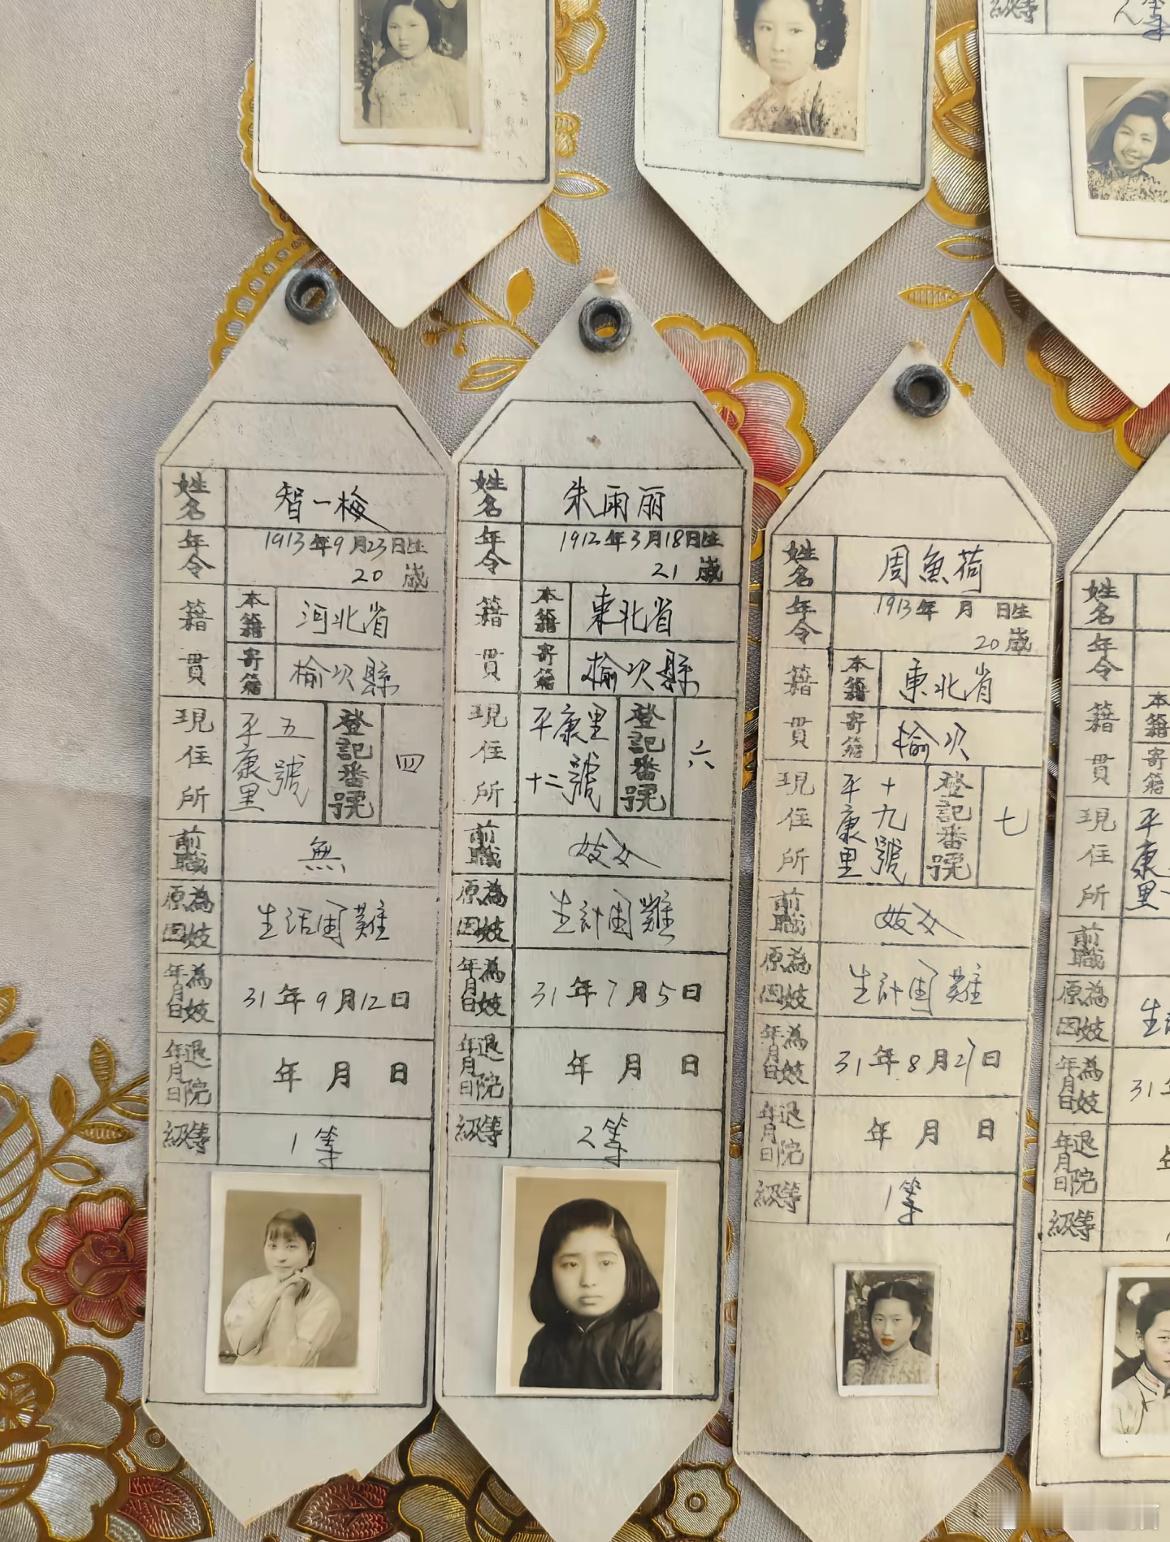 級等
2等
姓名
智一梅
年令
1913年9月23日生
20歲
籍貫
本籍
河北省
寄籍
榆次縣
現住所
平康里
五號
登記番號
四
前職
無
為妓原因
生活困難
為妓年月日
31年9月12日
退院年月日
年 月 日
等級
1等
姓名
朱雨丽
年令
1912年3月18日生
21歲
籍貫
本籍
東北省
寄籍
榆次縣
現住所
平康里
十二號
登記番號
六
前職
妓女
為妓原因
生計困難
為妓年月日
31年7月5日
退院年月日
年 月 日
等級
2等
姓名
周魚荷
年令
1913年 月 日生
20歲
籍貫
本籍
東北省
寄籍
榆次
現住所
平康里
十九號
登記番號
七
前職
妓女
為妓原因
生計困難
為妓年月日
31年8月27日
退院年月日
年 月 日
等級
1等
姓名
年令
籍貫
本籍
寄籍
現住所
平康里
前職
為妓原因
生
為妓年月日
31
退院年月日
年
等級